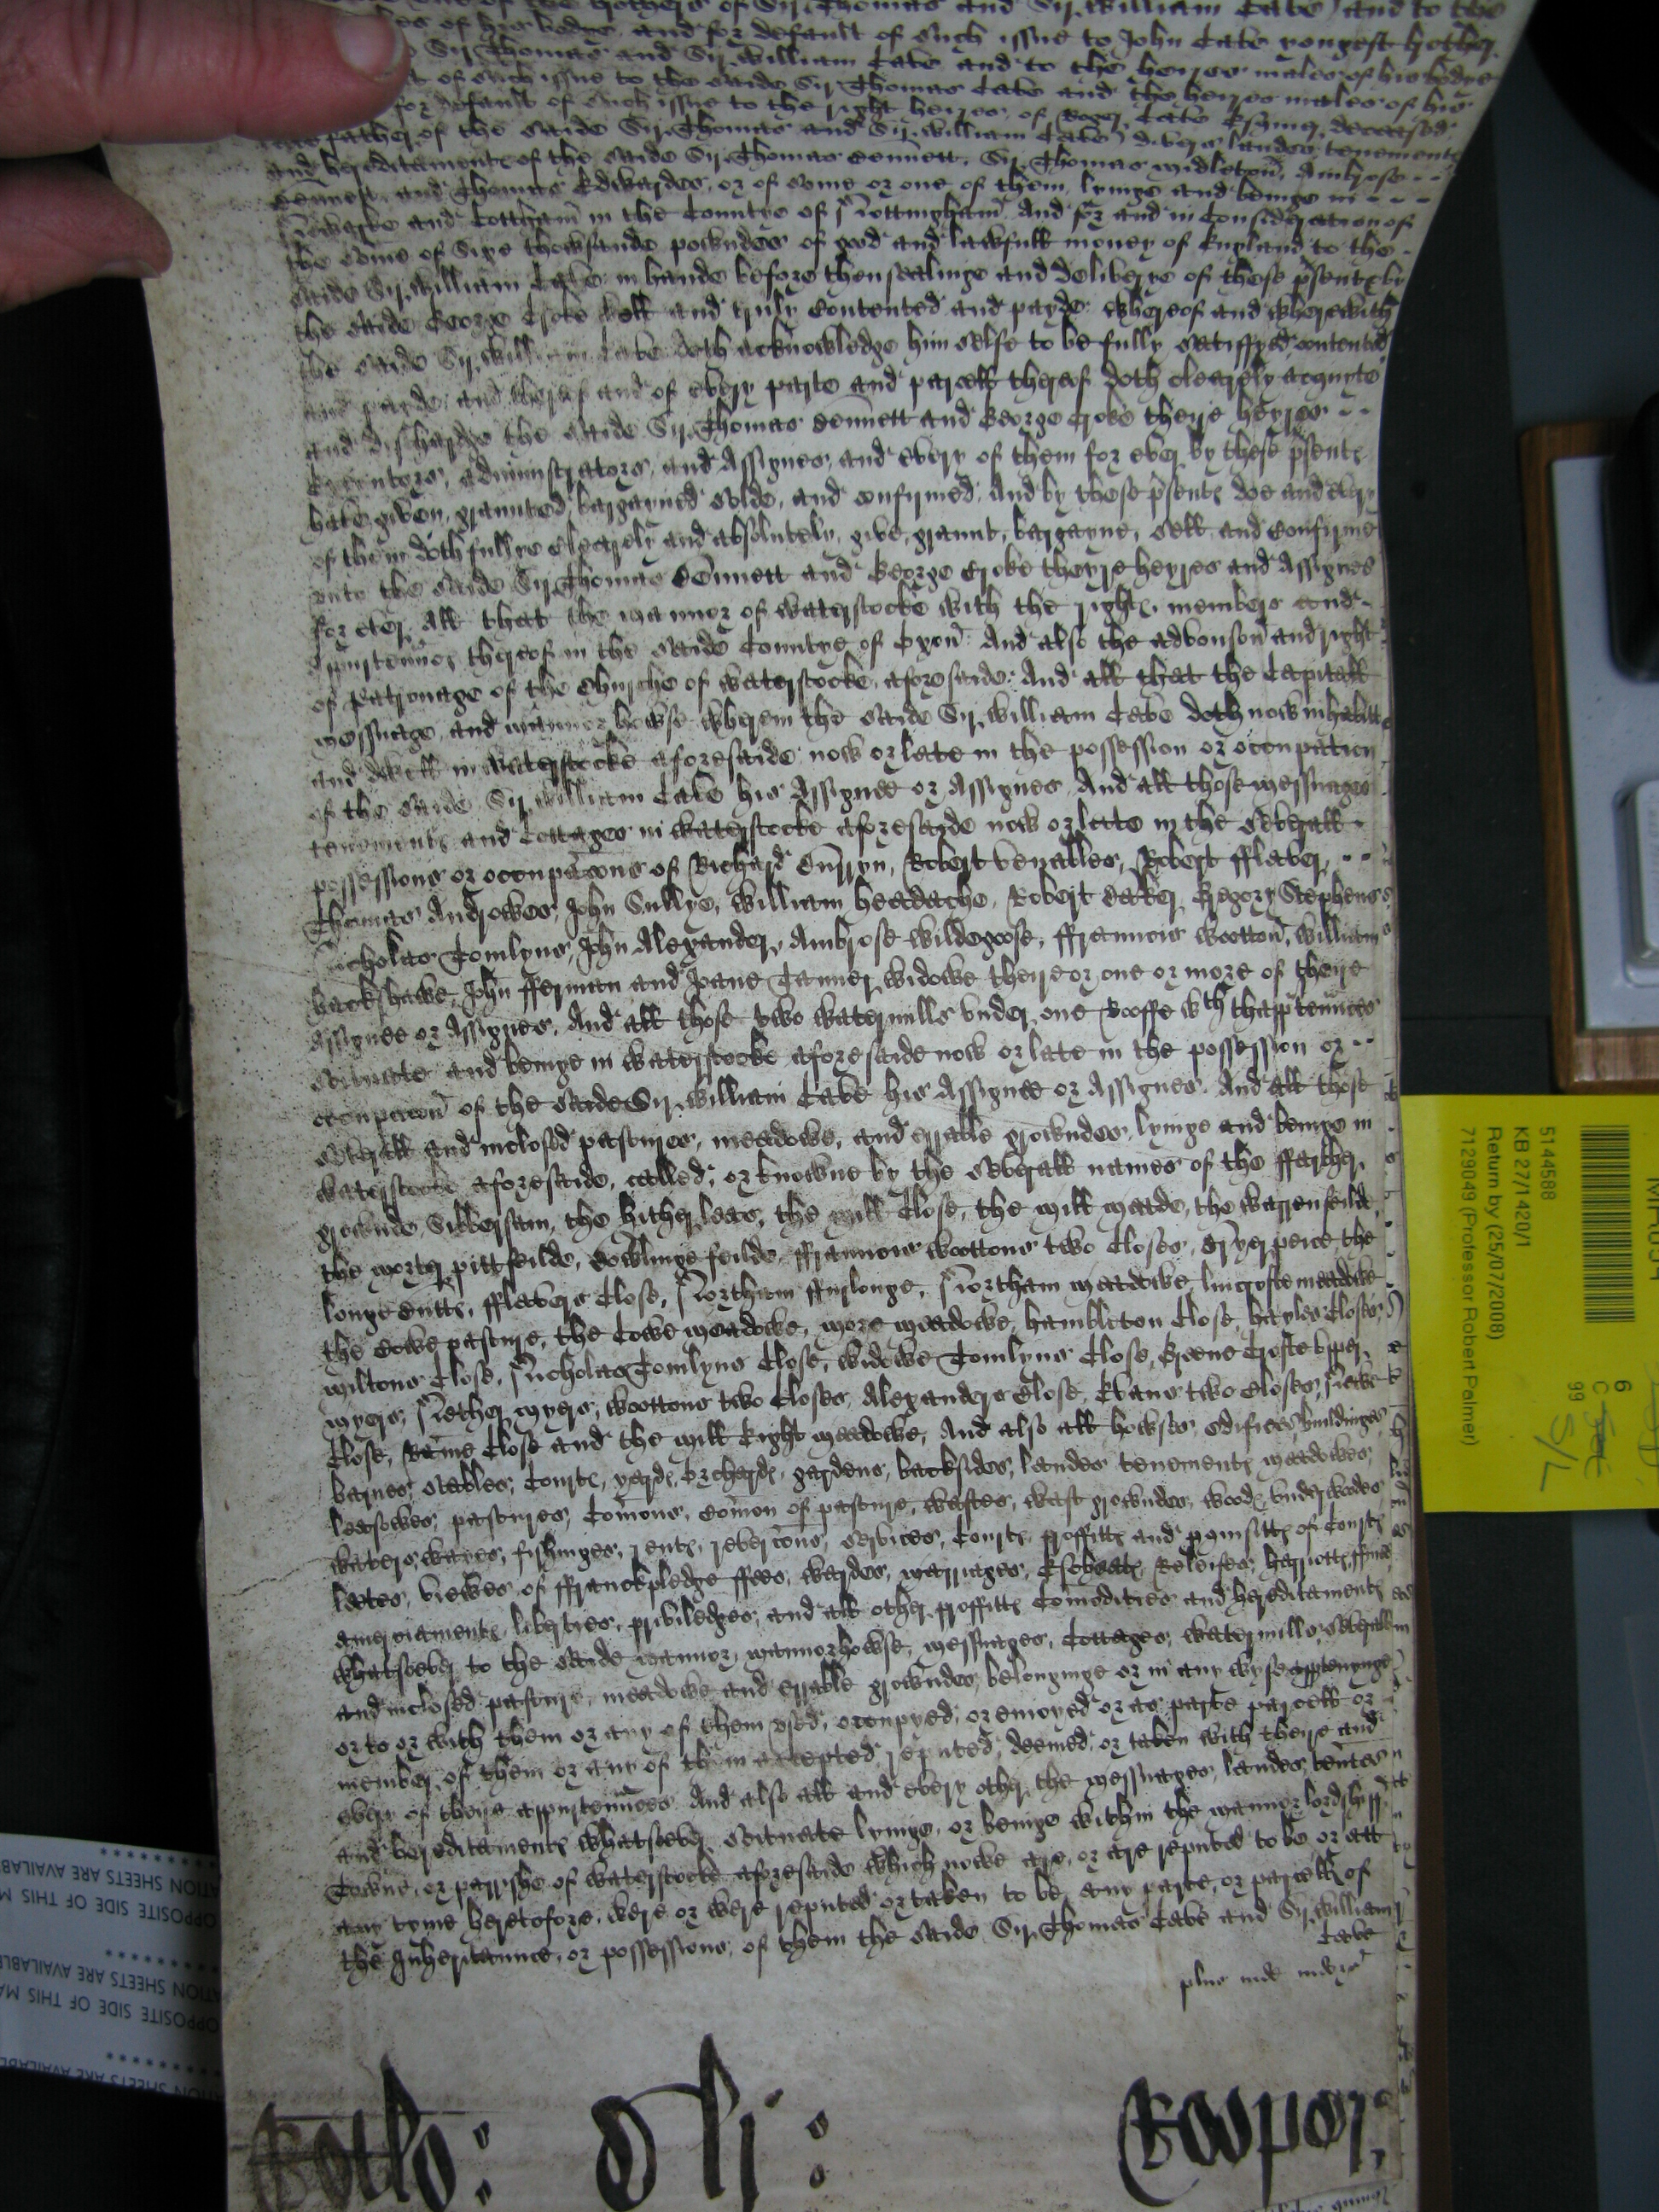 one of the brothers of Sir Thomas and Sir William Cave and to the
of his bodye, and for default of such issue to John Cave yongest brother
Sir Thomas and Sir William Cave and to the heyres males of his bodye
of such issue to the saide Sir Thomas Cave and the heyres males of his
for default of such issue to the right heyres of Roger Cave Esquier deceased
father of the saide Sir Thomas and Sir William Cave, divers landes tenementes
and hereditamentes of the saide Sir Thomas Bennett, Sir Thomas Midleton, Ambrose
Bennett, and Thomas Edwardes, or of some or one of them, lyinge and beinge in
Newarke and Cottham in the Countye of Nottingham And for and in Consideration of
the some of Sixe thowsande powndes of good and lawfull money of England to the
saide Sir William Cave in hande before thensealinge and deliverye of these psentes by
the saide George Croke well and truly Contented and payde, whereof and wherewith
the saide Sir William Cave doth acknowledge him selfe to be fully satisfyed contented
and payde, and thereof and of every parte and parcell thereof doth clearely acquyte
and discharge the saide Sir Thomas Bennett and George Croke theyre heyres
Executors, administrators, and Assignes, and every of them for ever by these psentes
have given, graunted, bargayned solde, and confirmed, And by these psentes doe and every
of them doth fullye clearely and absolutely, give, graunt, bargayne, sell and Confirme
unto the saide Sir Thomas Bennett and George Croke theyre heyres and Assignes
for ever, All that the mannor of Waterstocke with the rightes, members and
appurtennces thereof in the saide Countye of Oxon And also the advouson and right
of Patronage of the Churche of Waterstocke aforesaide: And all that the Capitall
messuage, and mannor howse wherein the saide Sir William Cave doth now inhabitt
and dwell in Waterstocke aforesaide now or late in the possession or occupation
of the saide Sir William Cave his Assignee or Assignes And all those messuages
tenementes and Cottages in Waterstocke aforesaide now or late in the severall
possessions or occupacons of Richard Curryn, Robert Venables, Robert fflaver,
Thomas Androwes, John Sullye, William Headache, Robert Barker Gregory Stephens
Nicholas Tomlyns, John Alexander, Ambrose Wildegoose, ffrauncis Wootton, William
Hackshawe, John fferman and Jane Tanner widowe theyre or one or more of theyre
Assignee or Assignes, And all those two watermills under one Rooffe wth thapptennces
scituate and beinge in Waterstocke aforesaide now or late in the possession or
occupacon of the saide Sir William Cave his Assignee or Assignes And all those
severall and inclosed pastures, meadowes, and errable growndes, lyinge and beinge in
Waterstocke aforesaide, called, or knowne by the severall names of the ffarther
grownde Silversam, the hither leas, the mill Close, the mill meade, the Warrenfeilde,
the morter pitt feilde, Bowlinge feilde, ffrauncis Woottons two Closes, pece, the
longe buttes, fflavers Close, Northam ffurlonge, Northam meadowe, lincrofte meadowe
the Cowe pasture, the Cowe meadowe, more meadowe, hambleton Close, hayles Closes,
miltons Close, Nicholas Tomlyns Close, widowe Tomlyns Close, Greene Crofte upper
myers, Nether myers, Woottons two Closes, Alexanders Close, Evans two Closes, Newe
Close, Rame Close and the mill Eight meadowe, And also all howses, edifices, buildinges
barnes, stables, Courtes, yardes, Orchardes, gardens, backsides, landes tenementes meadowes,
leasowes, pastures, Comons, Comon of pasture, wastes, wast growndes, woodes, underwoodes
waters, wares, fishinges, rentes, revercons, services, Courtes proffittes and pquisittes of Courtes
leetes, viewes of ffranckpledge ffees, wardes, marriages, Escheates, Releifes, harriottes, ffines
amerciamentes, liberties, priviledges, and all other proffittes Comodities and hereditamentes
whatsoever to the saide mannor, mannorhowse, messuages, Cottages, watermills, severall
and inclosed pasture, meadowe and errable growndes, belonginge or in any wyse apptenynge
or to or with them or any of them used, occupyed, or emoyed or as parte parcell or
member of them or any of them accepted, reputed, deemed, or taken with theyre and
every of theyre appurtennces And also all and every other the messuages, landes, tentes
and hereditamentes whatsoever scituate lyinge, or beinge within the mannor lordshipp
Towne, or parrishe of Waterstocke aforesaide which nowe are, or are reputed to be or att
any tyme heretofore, were or were reputed or taken to be, any parte, or parcell of
the Inheritaunce, or possessions, of them the saide Sir Thomas Cave and Sir William
Cave
plus inde
Rotlo: Roper
5144588
KB 27/1420/1
Return by (25/07/2008)
7129049 (Professor Robert Palmer)
6
99
S/L
ATION SHEETS ARE AVAILAB
OPPOSITE SIDE OF THIS MA
ATION SHEETS ARE AVAILABLE
OPPOSITE SIDE OF THIS MA
ATION SHEETS ARE AVAILABL